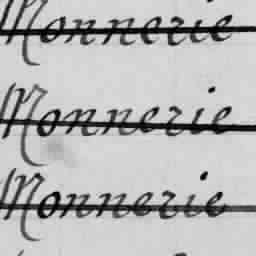 Monnerie
Monnerie
Monnerie